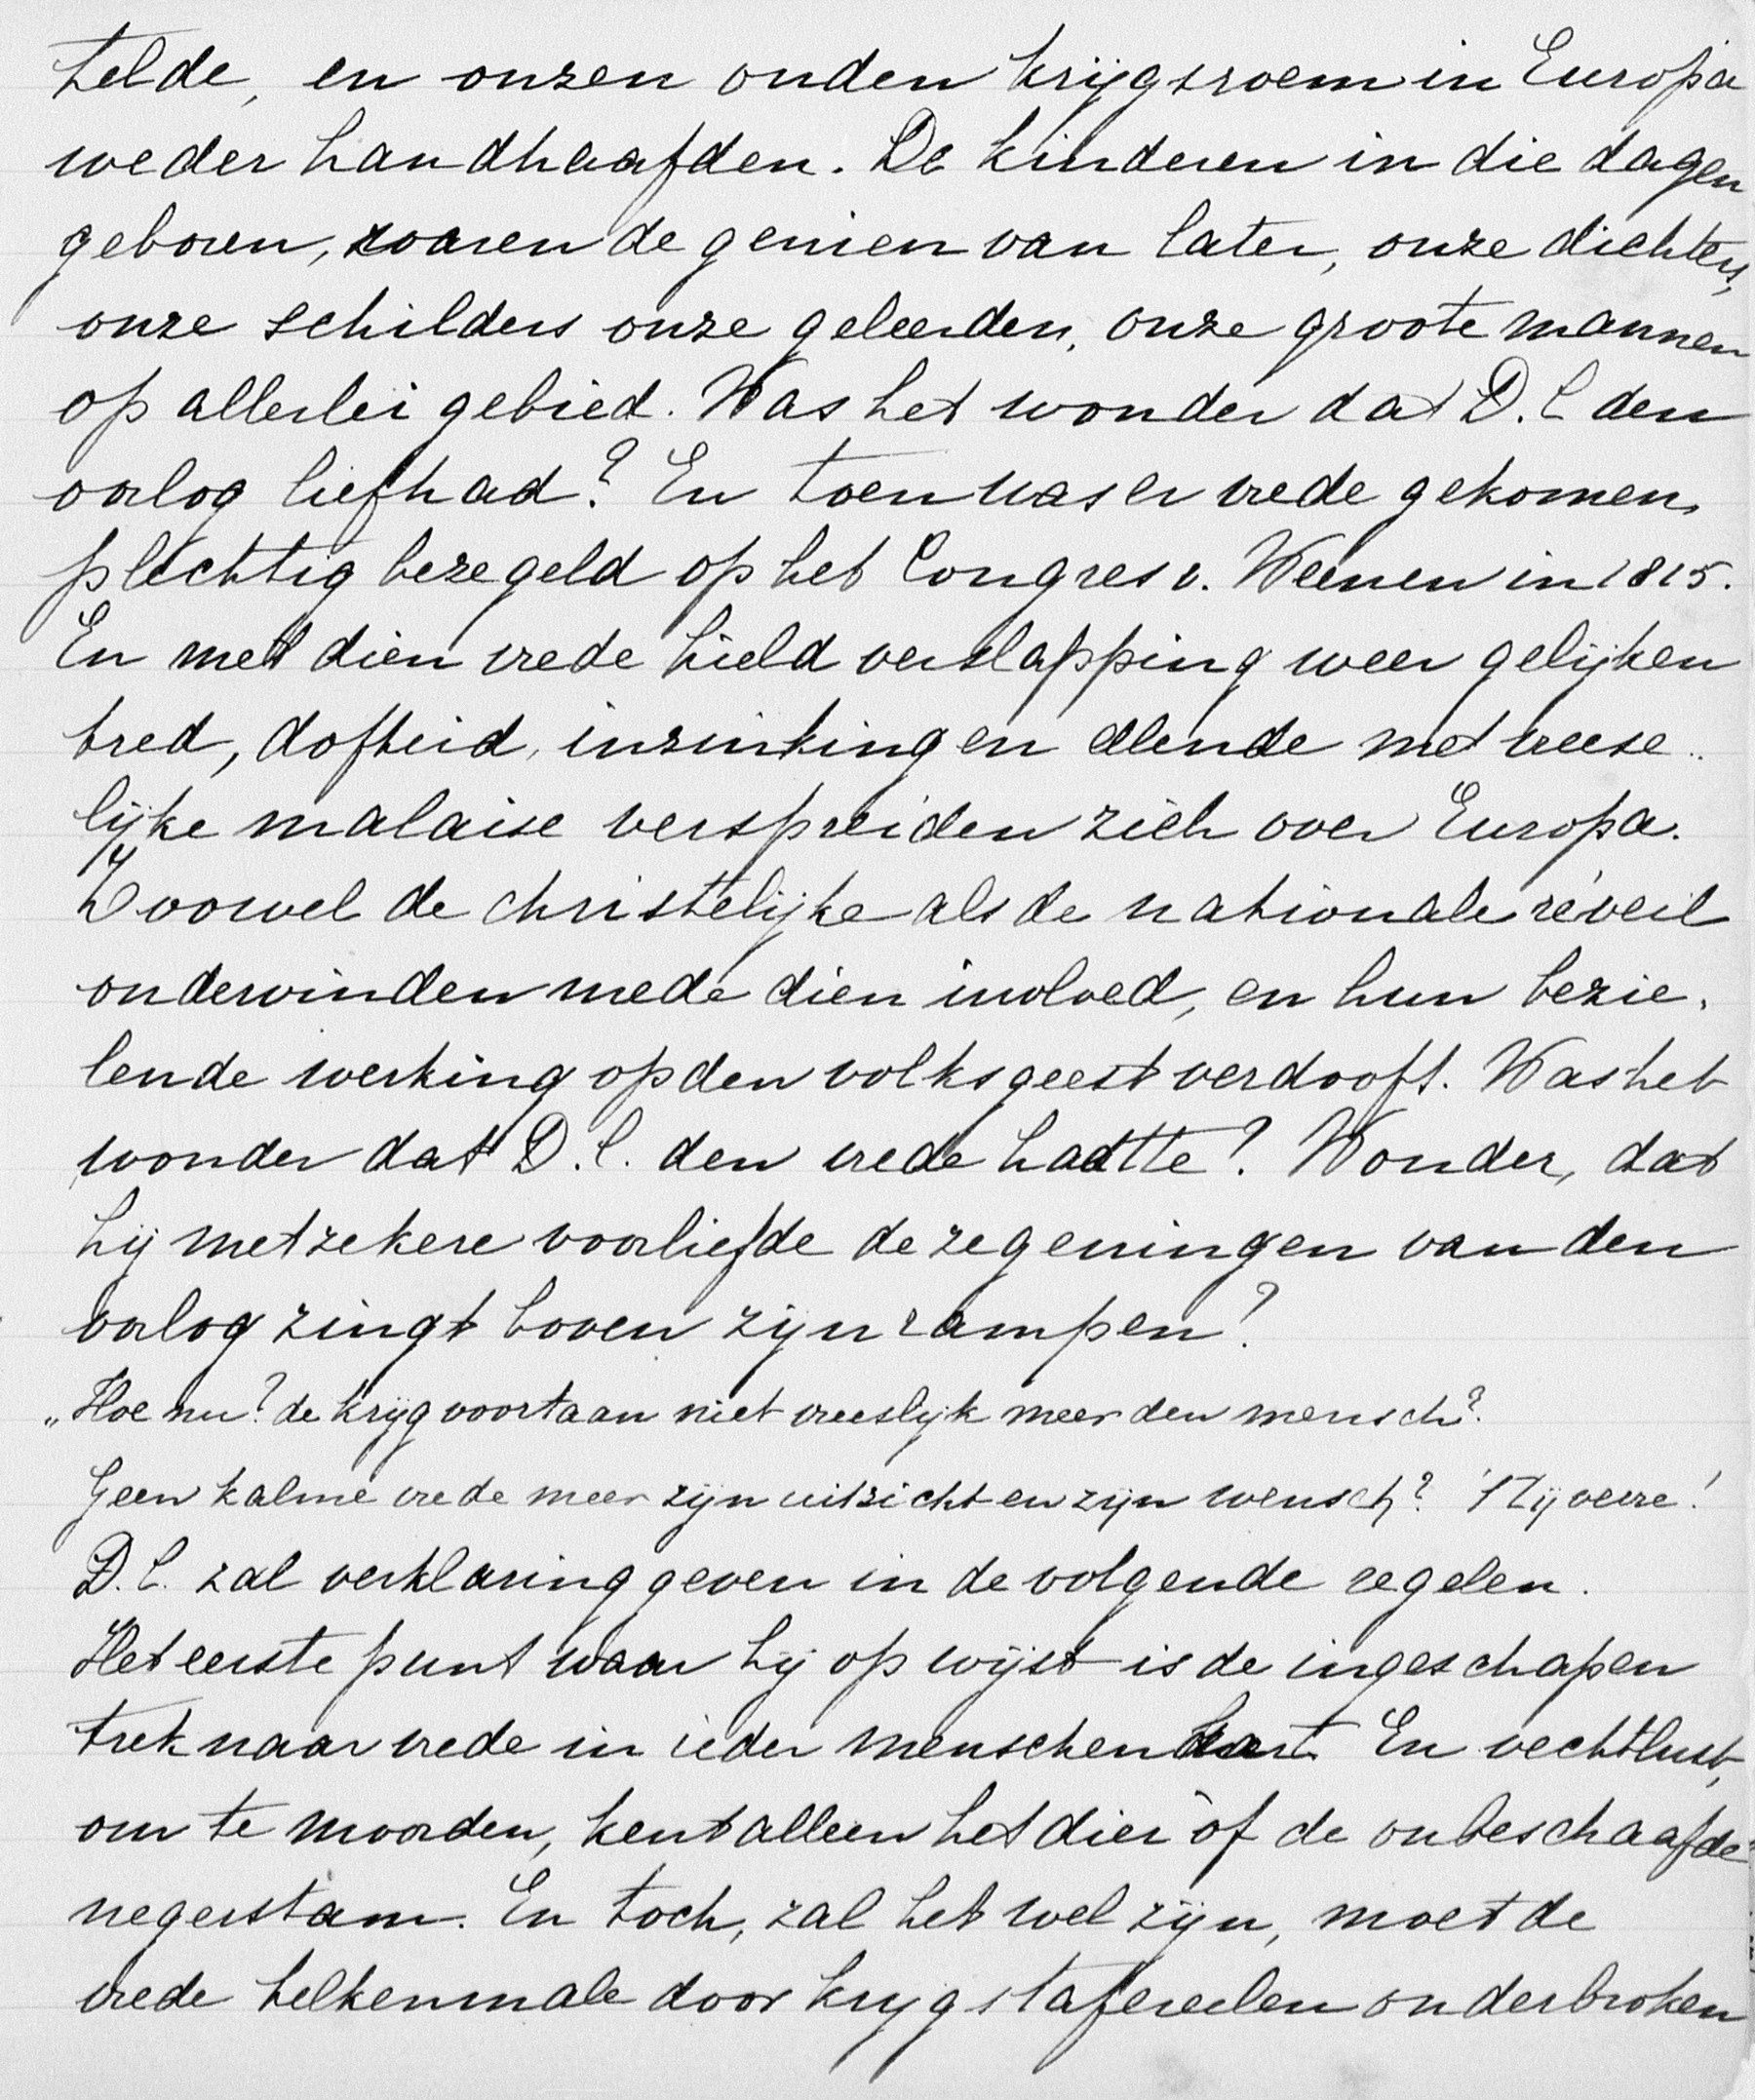 telde, en onzen ouden krijgsroem in Europa
weder handhaafden. De kinderen in die dagen
geboren, waren de genien van later, onze dichters,
onze schilders onze geleerden, onze groote mannen
op allerlei gebied. Was het wonder dat D. C. den
oorlog liefhad? En toen was er vrede gekomen,
plechtig bezegeld op het Congres v. Weenen in 1815.
En met dien vrede hield verslapping weer gelijken
tred, dofheid, inzinking en ellende met vreese-
lijke malaise verspreiden zich over Europa.
Zoowel de christelijke als de nationale réveil
ondervinden mede dien invloed, en hun bezie-
lende werking op den volksgeest verdooft. Was het
wonder dat D. C. den vrede haatte? Wonder, dat
hij met zekere voorliefde de zegeningen van den
oorlog zingt boven zijn rampen?
„Hoe nu? de krijg voortaan niet vreeslijk meer den mensch?
Geen kalme vrede meer zijn uitzicht en zijn wensch? 't Zij verre!
D. C. zal verklaring geven in de volgende regelen.
Het eerste punt waar hij op wijst is de ingeschapen
trek naar vrede in ieder menschenhart. En vechtlust,
om te moorden, kent alleen het dier òf de onbeschaafde
negerstam. En toch, zal het wel zijn, moet de
vrede telkenmale door krijgstafereelen onderbroken